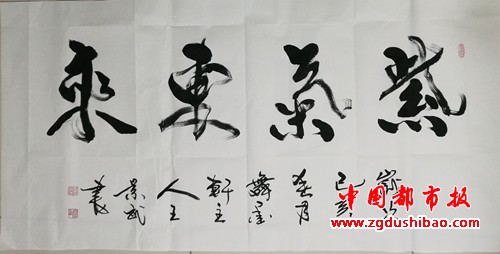 紫氣東來
歲次
己亥
春月
舞墨
軒主
人王
景武
書
中国都市报
www.zgdushibao.com